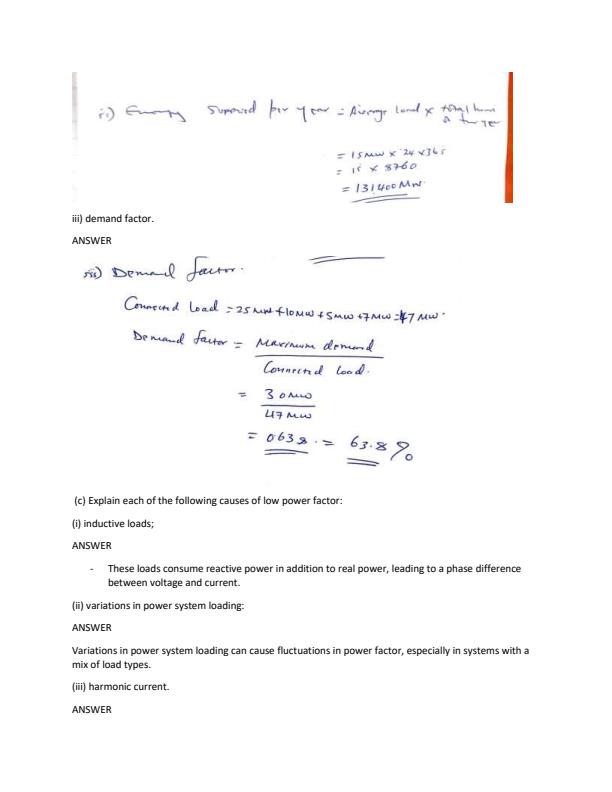 ii) Energy Supplied per year = Average load x total hours
in the year
= 15MW x 24 x 365
= 15 x 8760
= 131400 MW
iii) demand factor.
ANSWER
iii) Demand factor.
Connected Load = 25MW + 10MW + 5MW + 7MW = 47MW.
Demand factor = Maximum demand
Connected load.
= 30MW
47MW
= 0.638 = 63.8%
(c) Explain each of the following causes of low power factor:
(i) inductive loads;
ANSWER
- These loads consume reactive power in addition to real power, leading to a phase difference
between voltage and current.
(ii) variations in power system loading:
ANSWER
Variations in power system loading can cause fluctuations in power factor, especially in systems with a
mix of load types.
(iii) harmonic current.
ANSWER